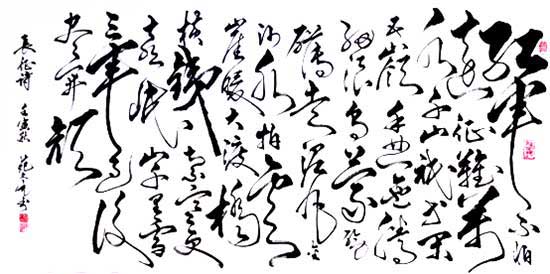 红军不怕
远征难万
水千山只等闲
五岭逶迤腾
细浪乌蒙磅
礴走泥丸金
沙水拍云
崖暖大渡桥
横铁索寒更
喜岷山千里雪
三军过后
尽开颜
长征诗